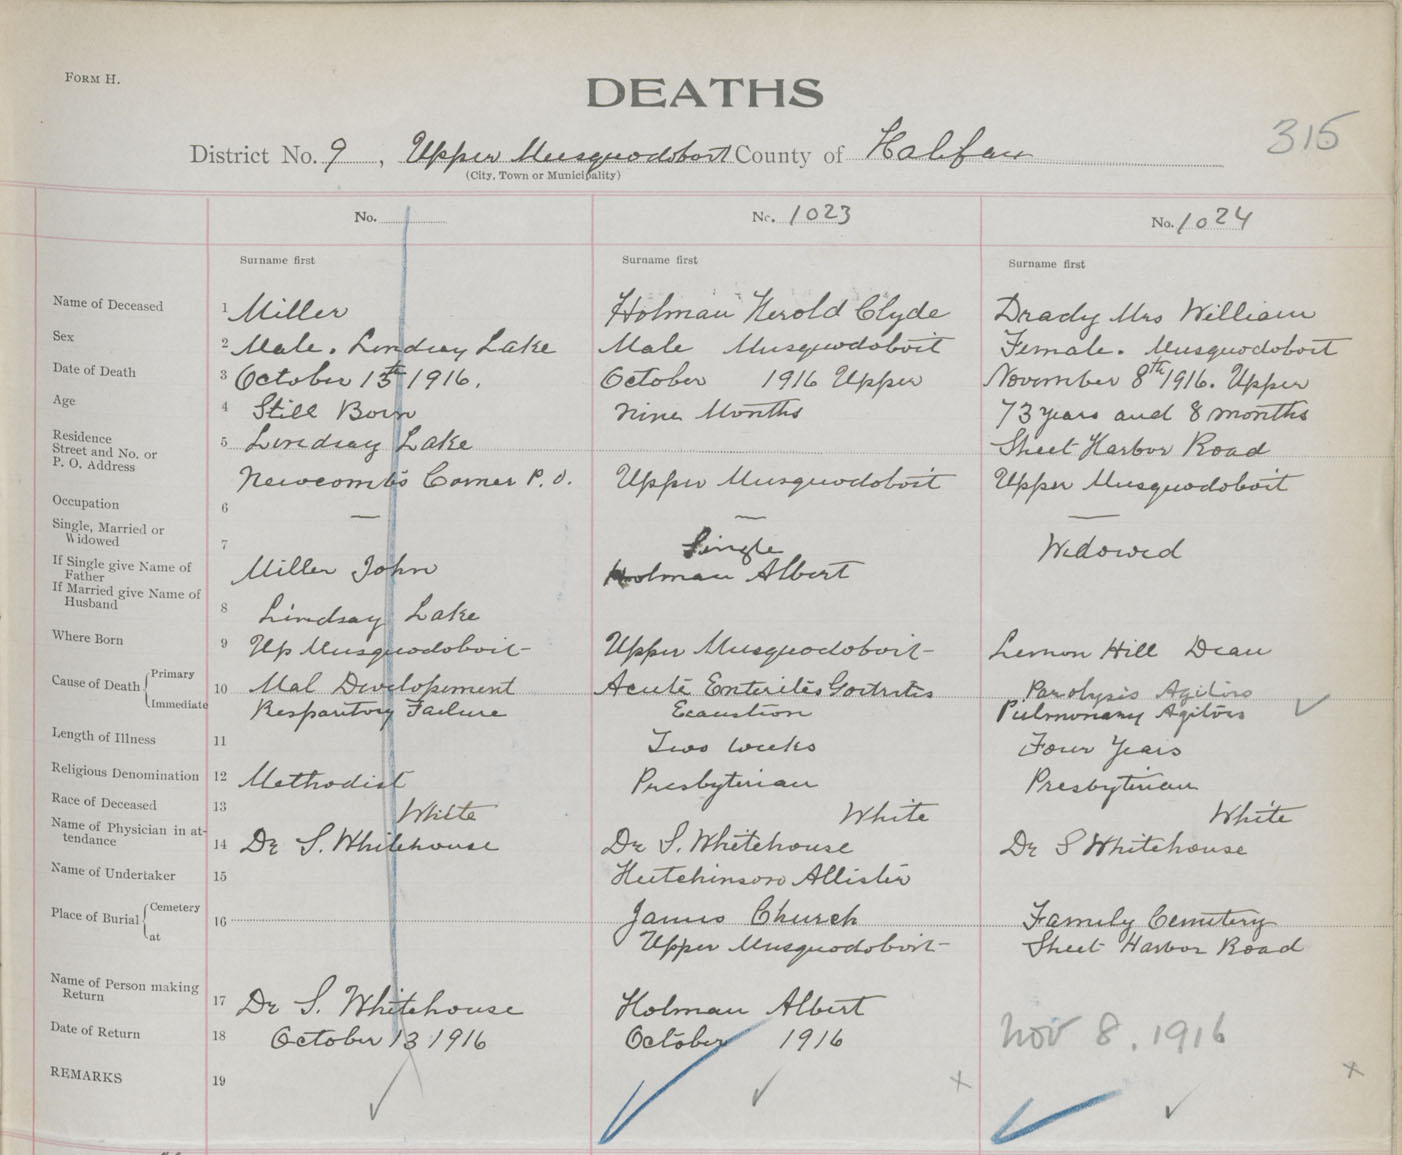 FORM H.
DEATHS
315
District No. 9, Upper Musquodoboit County of Halifax
(City, Town or Municipality)
No. No. 1023 No. 1024
Surname first Surname first Surname first
Name of Deceased 1 Miller Holman Herold Clyde Drady Mrs William
Sex 2 Male. Lindsay Lake Male Musquodoboit Female. Musquodoboit
Date of Death 3 October 13th 1916. October 1916 Upper November 8th 1916. Upper
Age 4 Still Born nine Months 73 years and 8 months
Residence
Street and No. or
P. O. Address
5 Lindsay Lake Sheet Harbor Road
Newcombs Corner P.O. Upper Musquodoboit Upper Musquodoboit
Occupation 6 — — —
Single, Married or
Widowed
7 Single Widowed
If Single give Name of
Father
Miller John Holman Albert
If Married give Name of
Husband
8 Lindsay Lake
Where Born 9 Up Musquodoboit Upper Musquodoboit Lemon Hill Dean
Cause of Death Primary 10 Mal Development Acute Enterites Paralysis Agitors
Immediate Resparitory Failure Ecaustion Pulmonary Agitors
Length of Illness 11 Two weeks Four Years
Religious Denomination 12 Methodist Presbyterian Presbyterian
Race of Deceased 13 White White White
Name of Physician in at-
tendance
14 Dr S. Whitehouse Dr S. Whitehouse Dr S Whitehouse
Name of Undertaker 15 Hutchinson Allister
Place of Burial Cemetery 16 James Church Family Cemetery
at Upper Musquodoboit Sheet Harbor Road
Name of Person making
Return
17 Dr S. Whitehouse Holman Albert
Date of Return 18 October 13 1916 October 1916 Nov 8. 1916
REMARKS 19